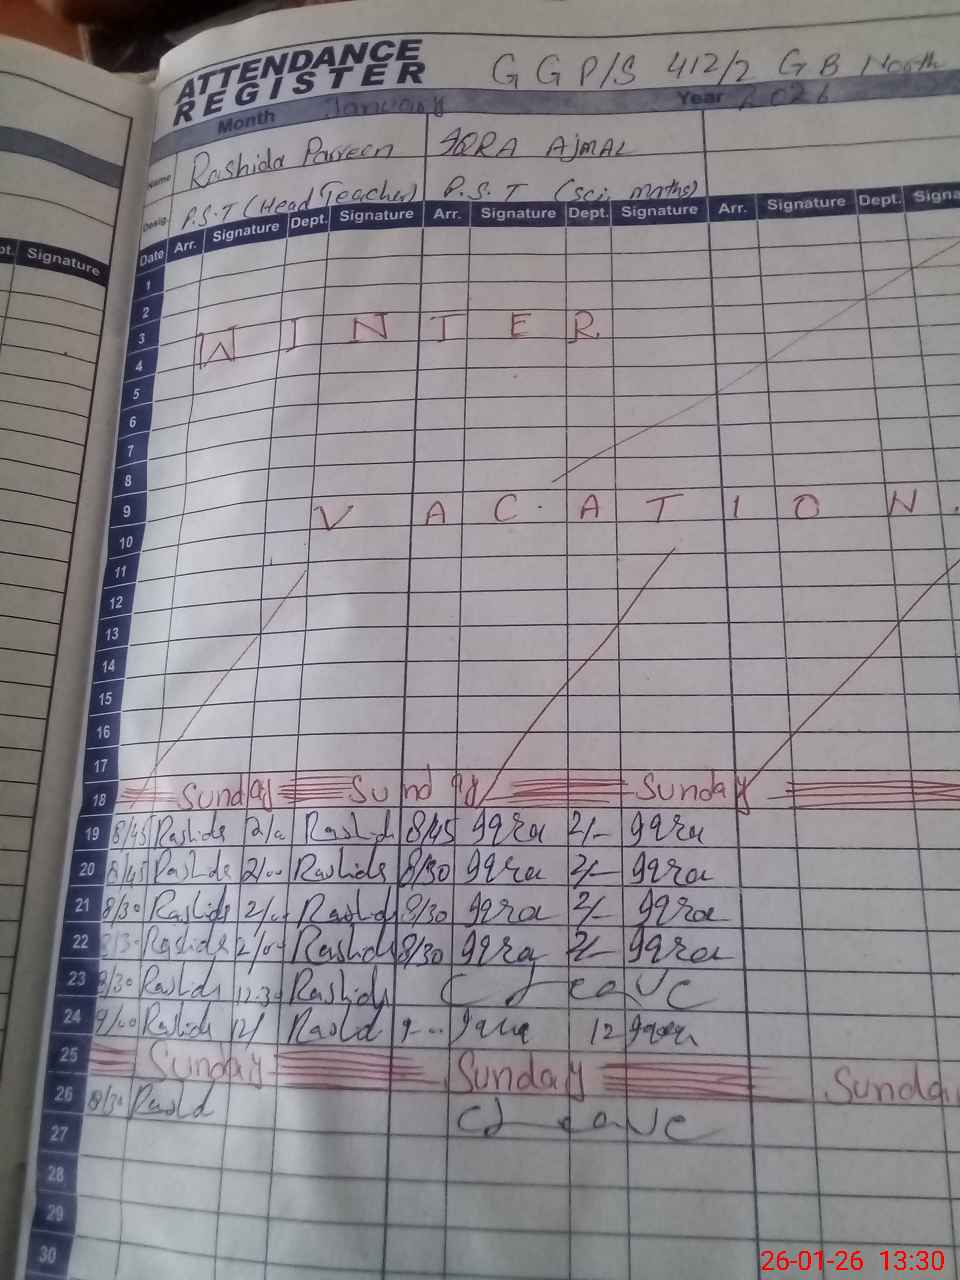 ATTENDANCE REGISTER
G G P/S 412/2 G B North
Month January Year 2026
Name Rashida Parveen IQRA AjMAL
Desig. P.S.T (Head Teacher) P.S.T (Sci, maths)
pt. Signature
Date Arr. Signature Dept. Signature Arr. Signature Dept. Signature Arr. Signature Dept. Signa
1
2
3 W I N T E R
4
5
6
7
8
9 V A C A T I O N
10
11
12
13
14
15
16
17
18 Sunday Sunday Sunday
19 8/45 Rashida Rashid 8/45 iqra 2/- iqra
20 8/45 Rashida 2/00 Rashida 8/30 iqra 2/- iqra
21 8/30 Rashida Rashid 8/30 iqra 2/- iqra
22 Rashida Rashida 8/30 iqra 2/- iqra
23 8/30 Rashida 12:30 Rashida C Leave
24 9/00 Rashida 12/ Rashid iqra 12 iqra
25 Sunday Sunday Sunday
26 8/30 Rashid C Leave
27
28
29
30
26-01-26 13:30